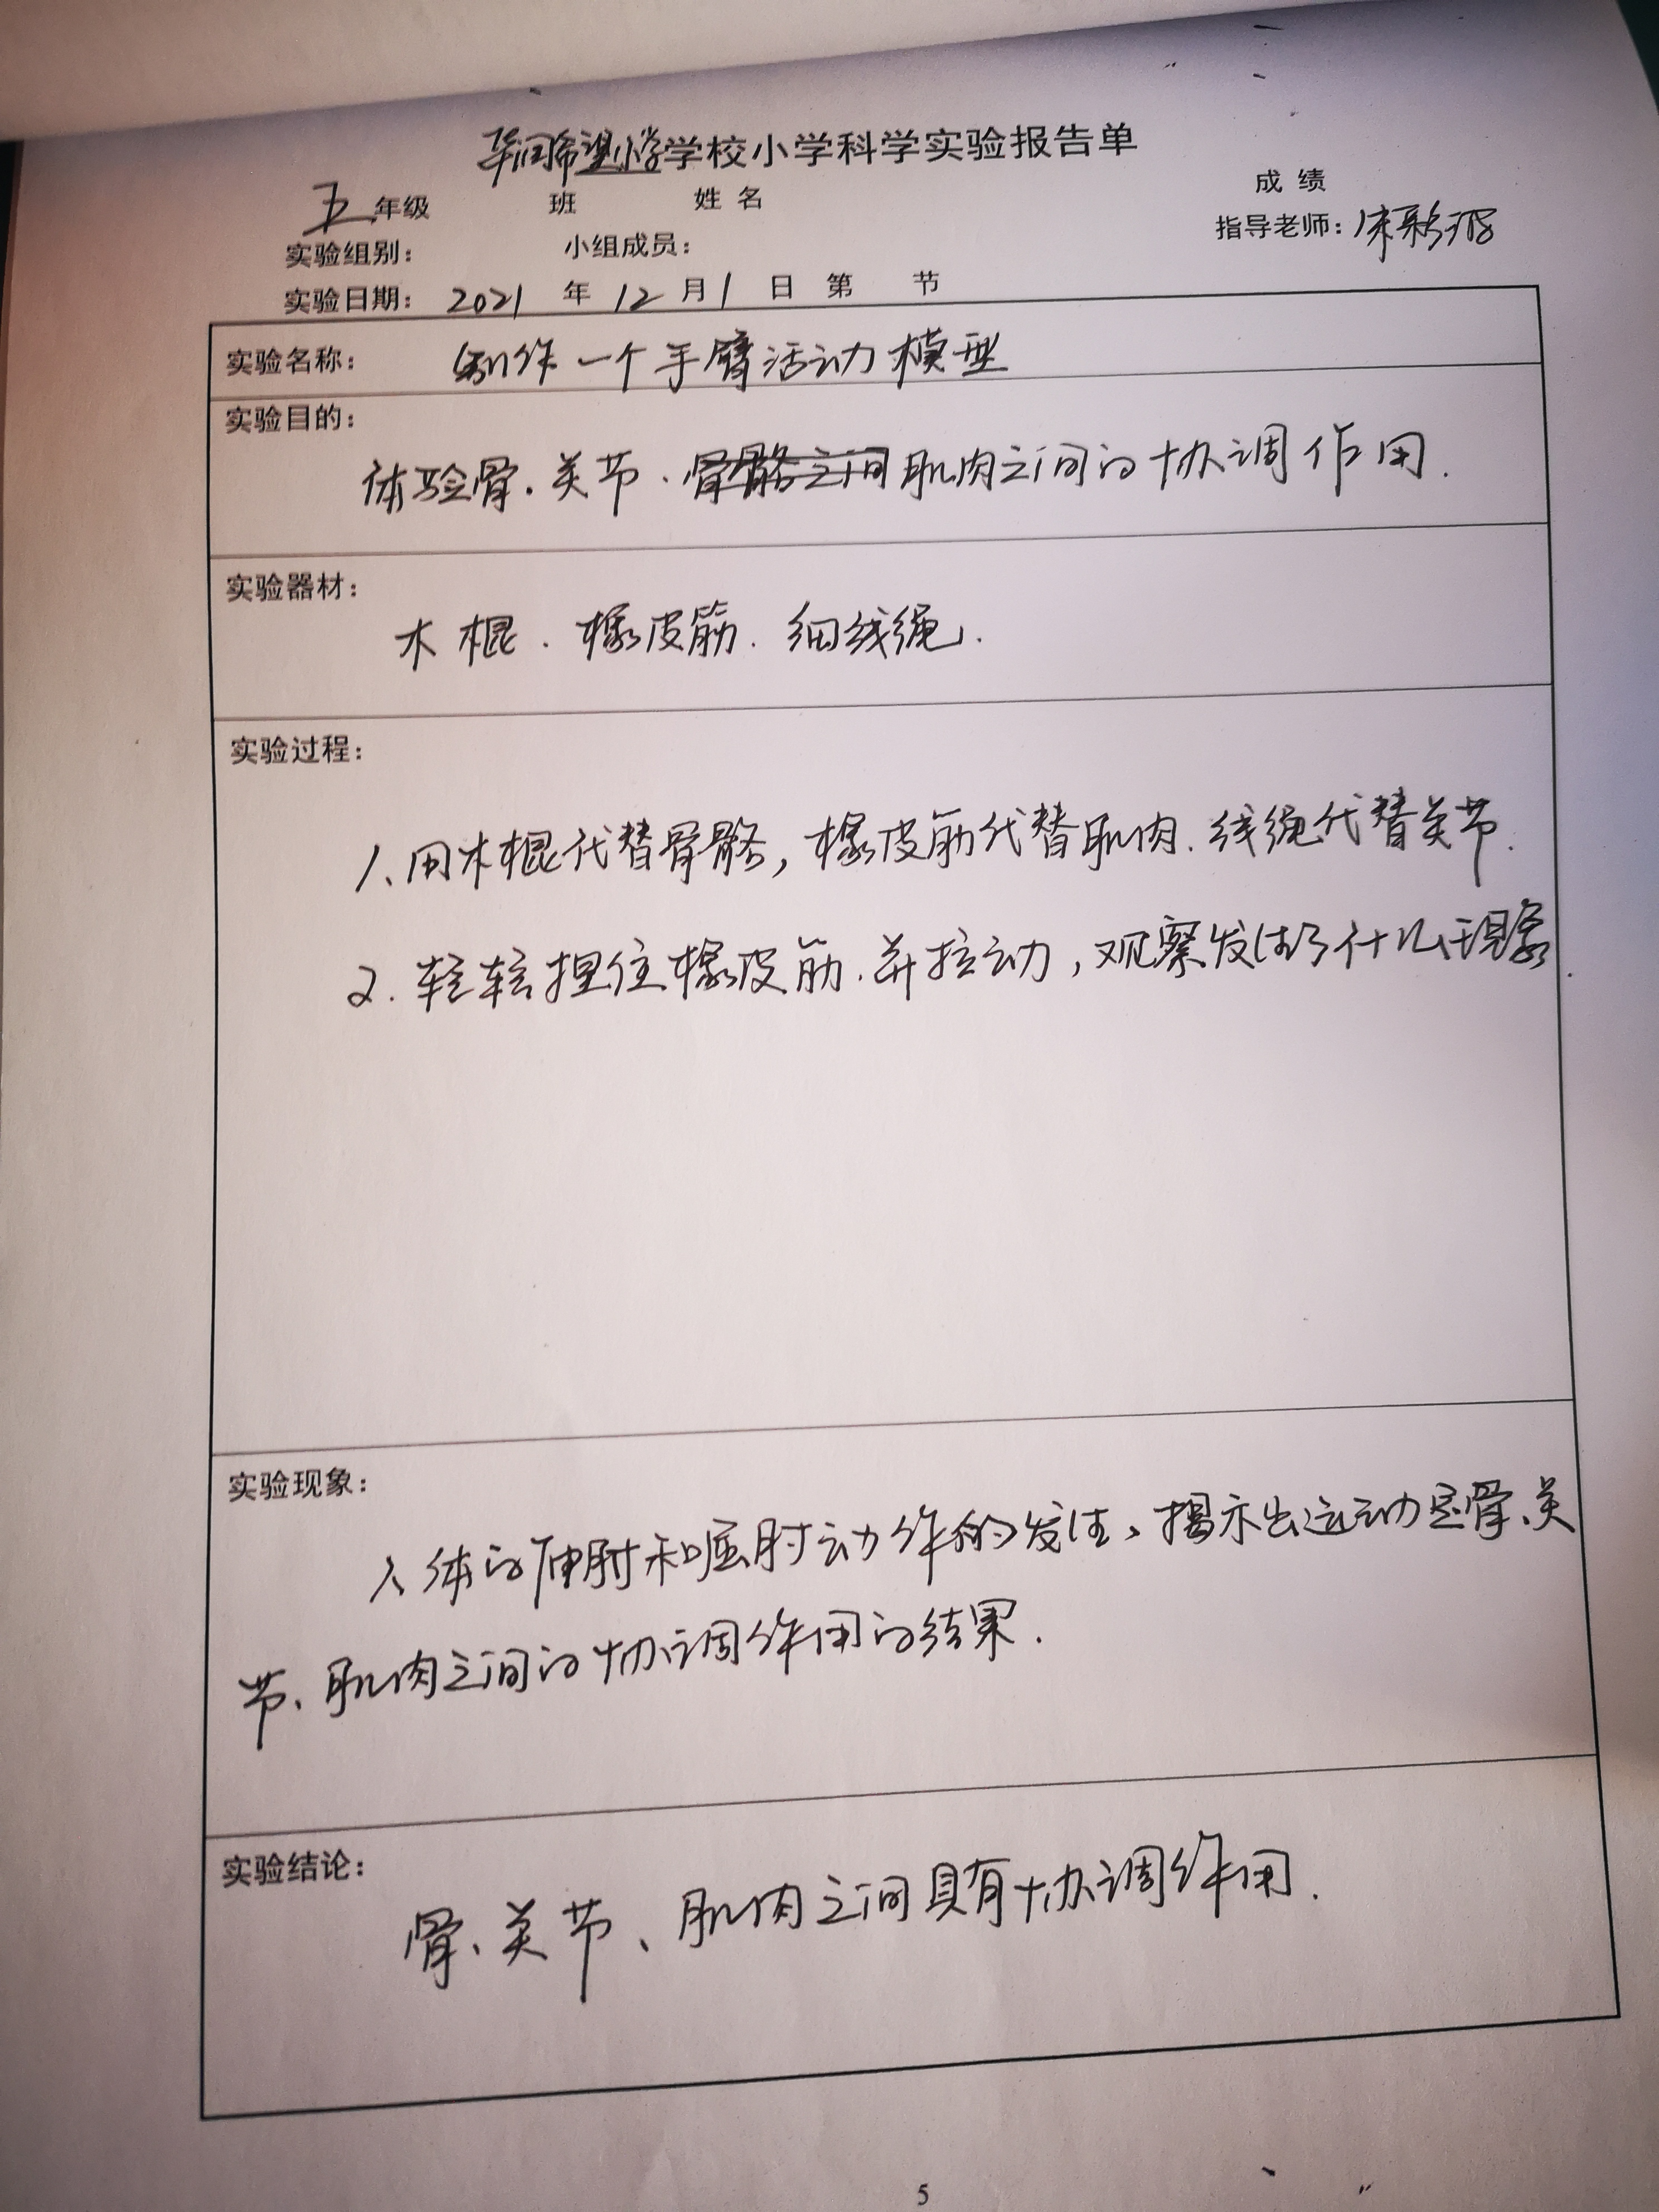 华润希望小学学校小学科学实验报告单
五年级 班 姓名 成绩
实验组别: 小组成员: 指导老师:
实验日期: 2021 年 12 月 1 日 第 节
实验名称: 制作一个手臂活动模型
实验目的:
体验骨.关节.骨骼之间肌肉之间的协调作用.
实验器材:
木棍.橡皮筋.细线绳.
实验过程:
1、用木棍代替骨骼,橡皮筋代替肌肉.线绳代替关节.
2.轻轻捏住橡皮筋.并拉动,观察发生了什么现象.
实验现象:
人体的伸肘和屈肘动作的发生,揭示出运动是骨、关
节、肌肉之间的协调作用的结果.
实验结论:
骨、关节、肌肉之间具有协调作用.
5